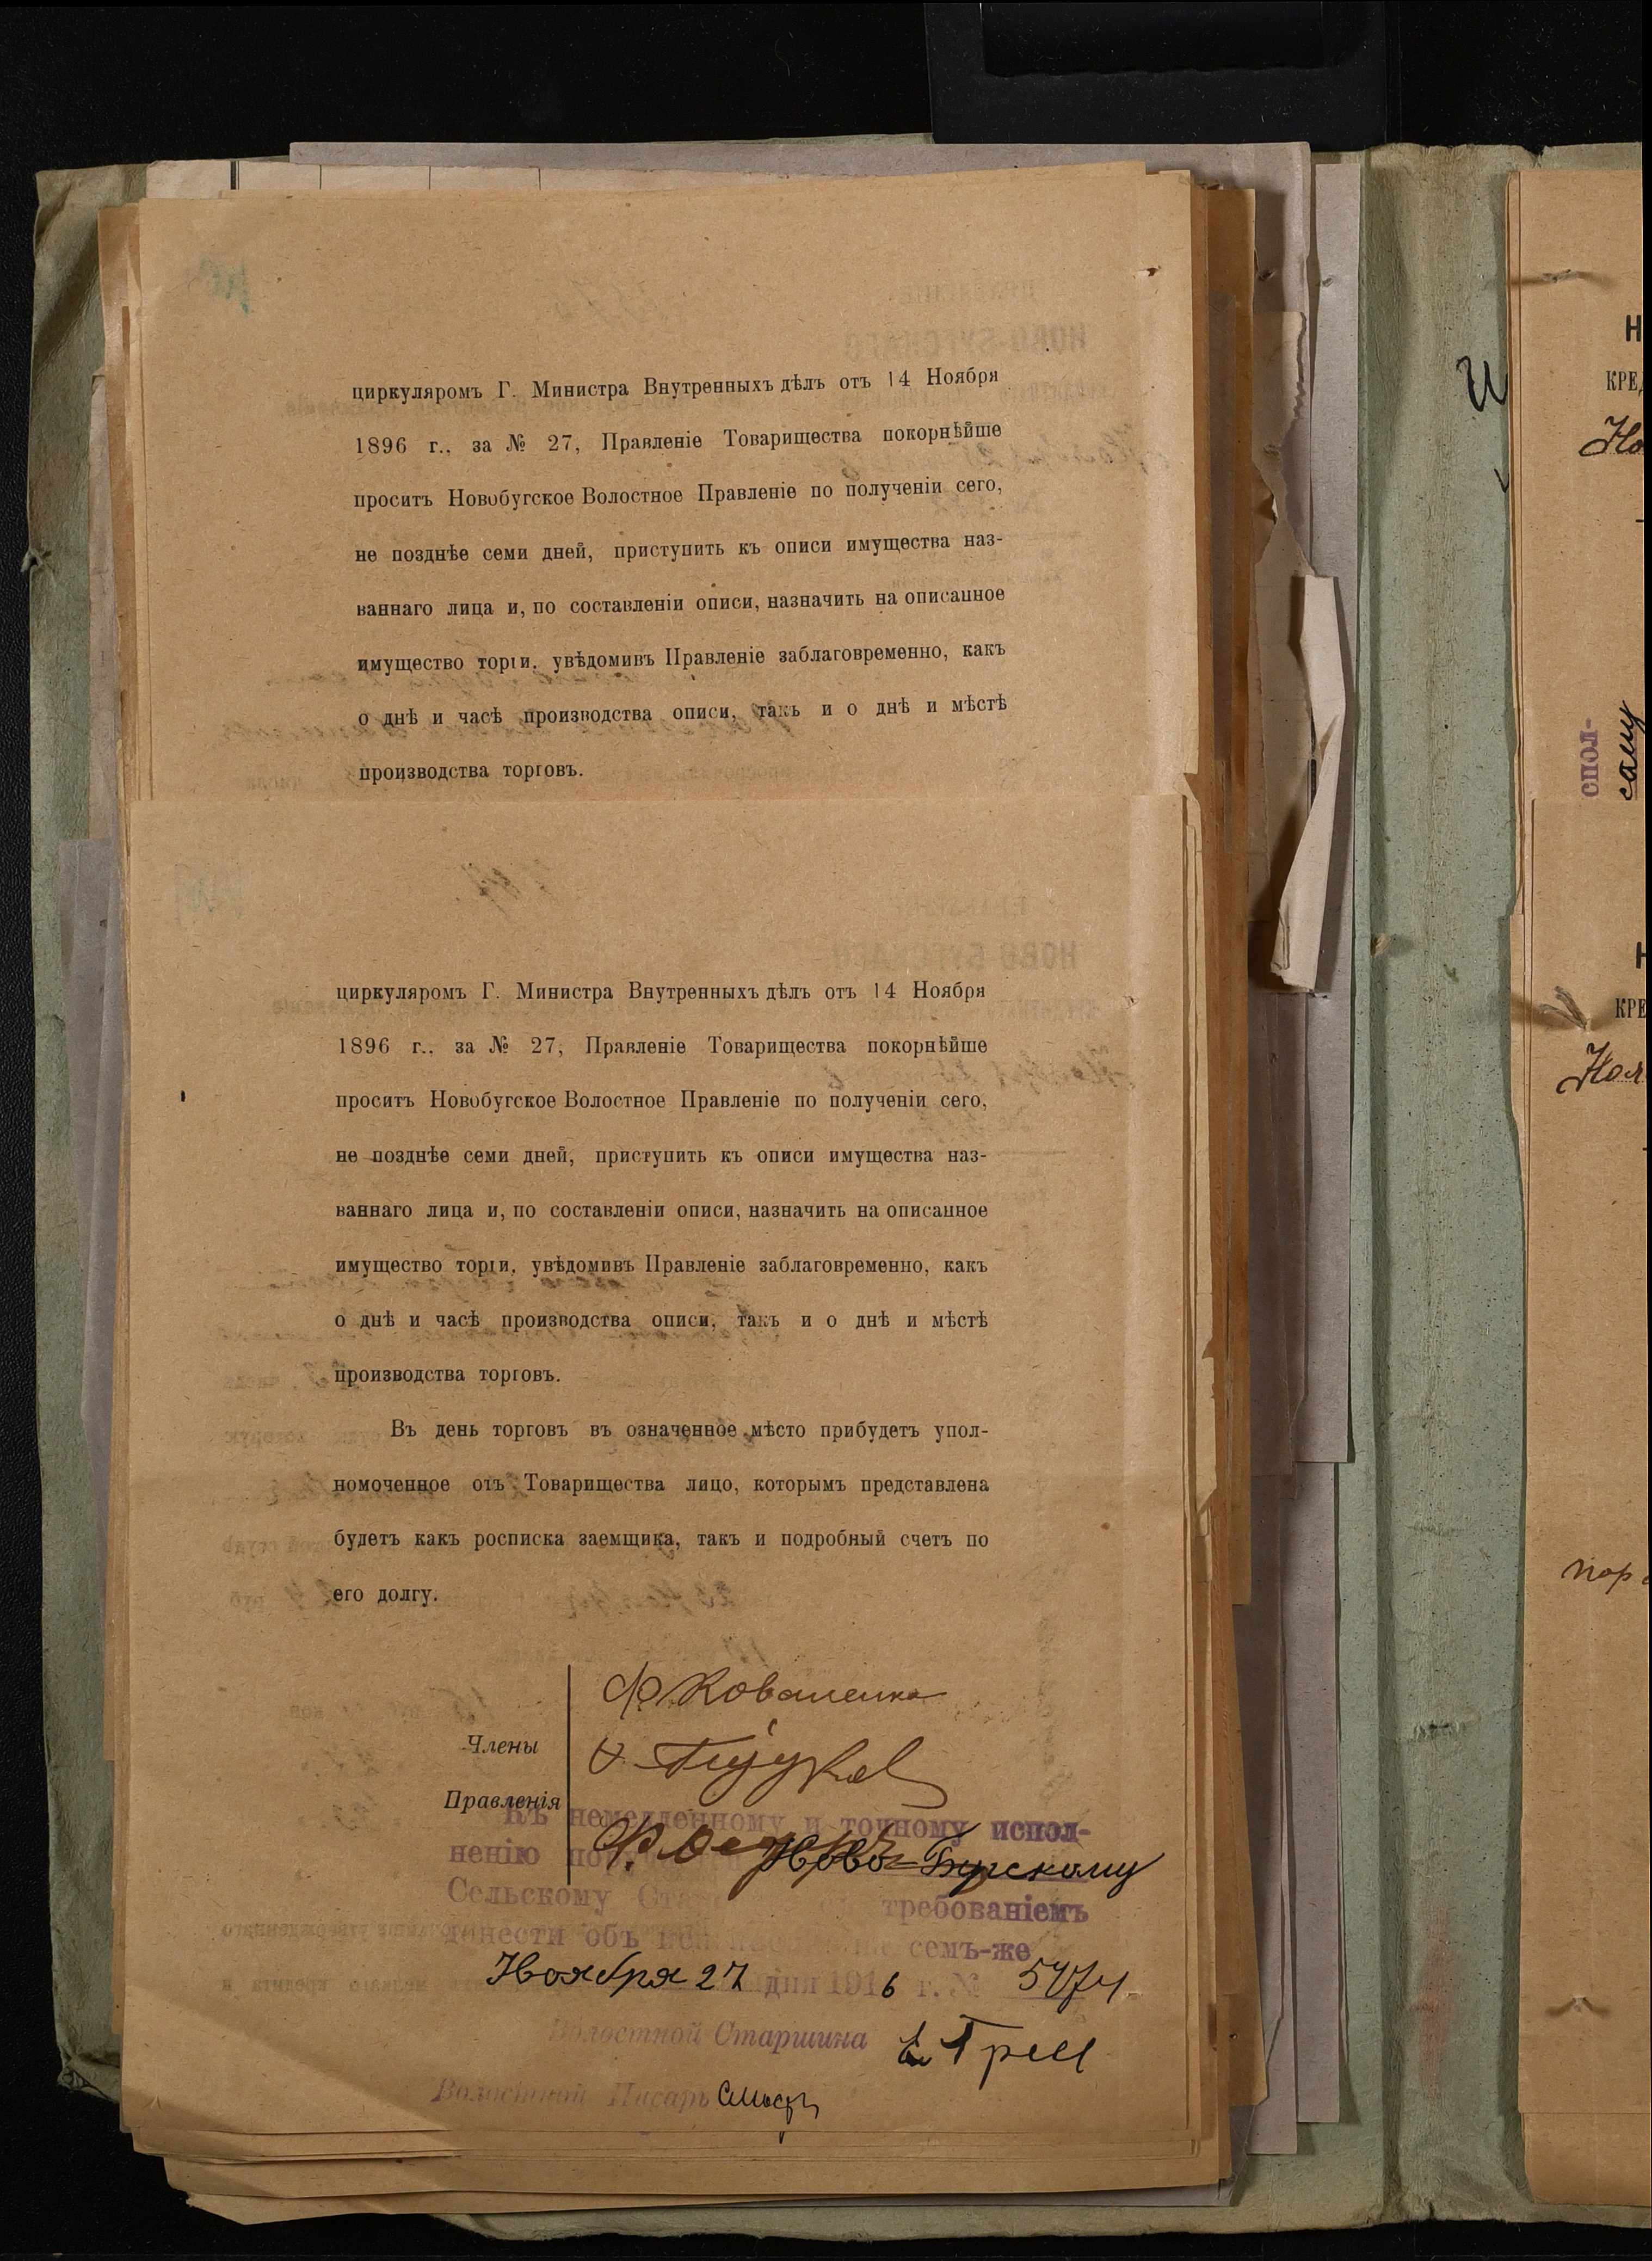 циркуляромъ Г. Министра Внутренныхъ дѣлъ отъ 14 Ноября
1896 г., за № 27, Правленіе Товарищества покорнѣйше
проситъ Новобугское Волостное Правленіе по полученіи сего,
не позднѣе семи дней, приступить къ описи имущества наз-
ваннаго лица и, по составленіи описи, назначить на описанное
имущество торги, увѣдомивъ Правленіе заблаговременно, какъ
о днѣ и часѣ производства описи, такъ и о днѣ и мѣстѣ
производства торговъ.
циркуляромъ Г. Министра Внутренныхъ дѣлъ отъ 14 Ноября
1896 г., за № 27, Правленіе Товарищества покорнѣйше
проситъ Новобугское Волостное Правленіе по полученіи сего,
не позднѣе семи дней, приступить къ описи имущества наз-
ваннаго лица и, по составленіи описи, назначить на описанное
имущество торги, увѣдомивъ Правленіе заблаговременно, какъ
о днѣ и часѣ производства описи, такъ и о днѣ и мѣстѣ
производства торговъ.
Въ день торговъ въ означенное мѣсто прибудетъ упол-
номоченное отъ Товарищества лицо, которымъ представлена
будетъ какъ росписка заемщика, такъ и подробный счетъ по
его долгу.
Ф. Коваленко
Члены
Правленія
Къ немедленному и точному испол-
ненію Ново-Бугскому
Сельскому требованіемъ
донести объ семъ-же
Ноября 27 дня 1916 г. № 5474
Волостной Старшина Е. Грел
Волостной Писарь
спол-
саму
Н
КРЕ
Но
Н
КРЕ
Ноя